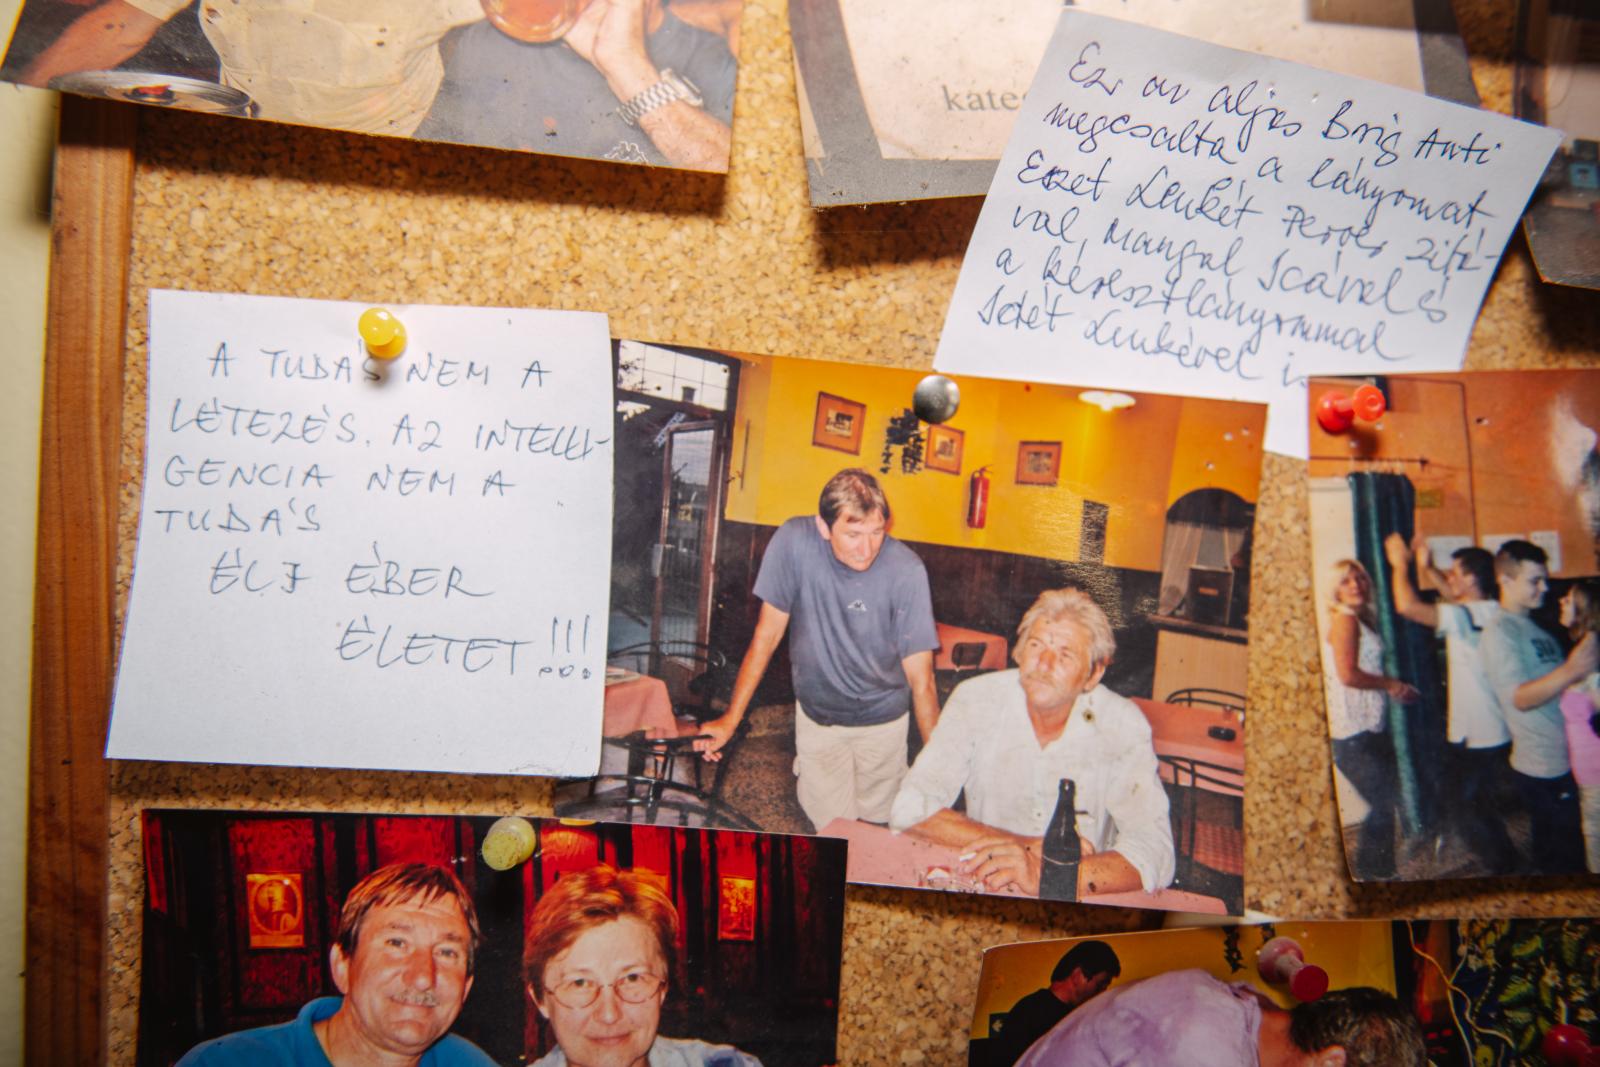 kate
Ez az aljas Brig Anti
megcsalta a lányomat
Eszet Lenkét Perger Zitá-
val, Mangal Icával és
a keresztlányommal
Setét Lenkével is
A TUDÁS NEM A
LÉTEZÉS. AZ INTELLI-
GENCIA NEM A
TUDÁS
ÉLJ ÉBER
ÉLETET!!!